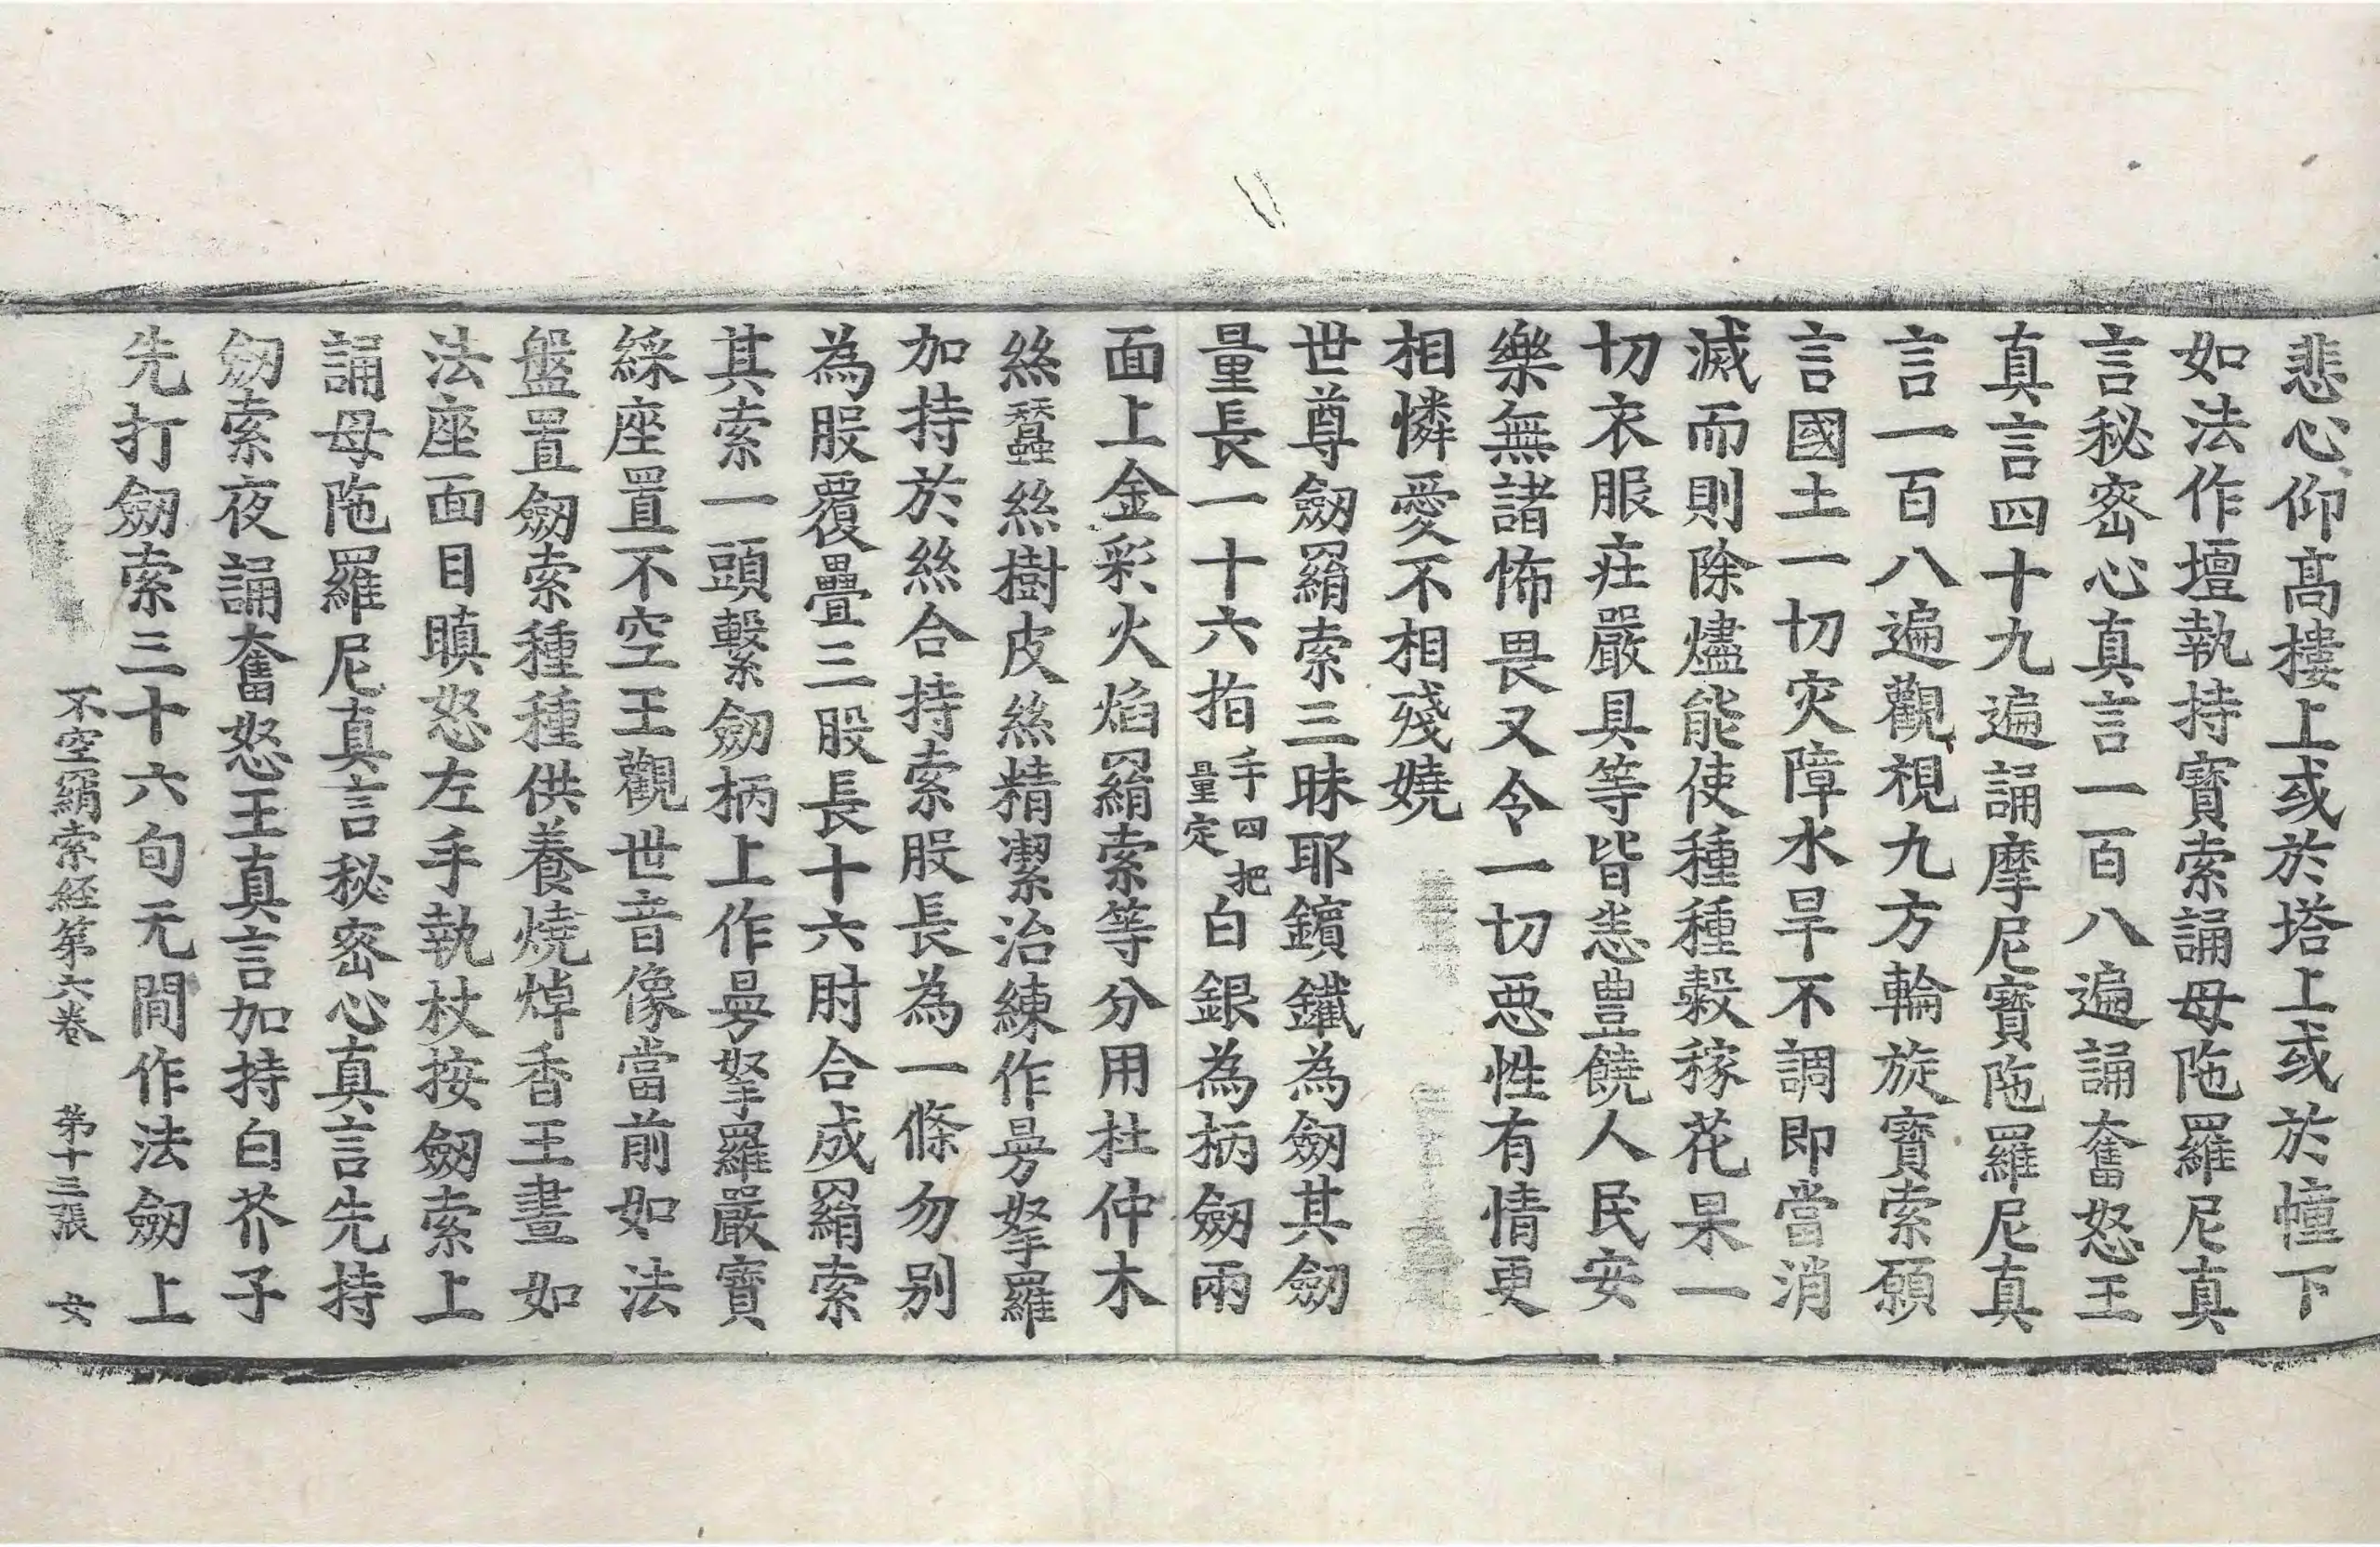 悲心仰高樓上或於塔上或於幢下
如法作壇執持寶索誦母陁羅尼真
言秘密心真言一百八遍誦奮怒王
真言四十九遍誦摩尼寶陁羅尼真
言一百八遍觀視九方輪旋寶索願
言國土一切灾障水旱不調即當消
滅而則除燼能使種種穀稼花果一
切衣服莊嚴具等皆悉豊饒人民安
樂無諸怖畏又令一切惡性有情更
相憐愛不相殘嬈
世尊劒羂索三昧耶鑌鐵為劒其劒
量長一十六指手四把量定白銀為柄劒兩
面上金彩火焰羂索等分用杜仲木
絲蠶絲樹皮絲精潔治練作曼拏羅
加持於絲合持索股長為一條勿别
為股覆疊三股長十六肘合成羂索
其索一頭繫劒柄上作曼拏羅嚴寶
綵座置不空王觀世音像當前如法
盤置劒索種種供養燒焯香王晝如
法座面目瞋怒左手執杖按劒索上
誦母陁羅尼真言秘密心真言先持
劒索夜誦奮怒王真言加持白芥子
先打劒索三十六旬无間作法劒上
不空羂索経第六巻 第十三張 女